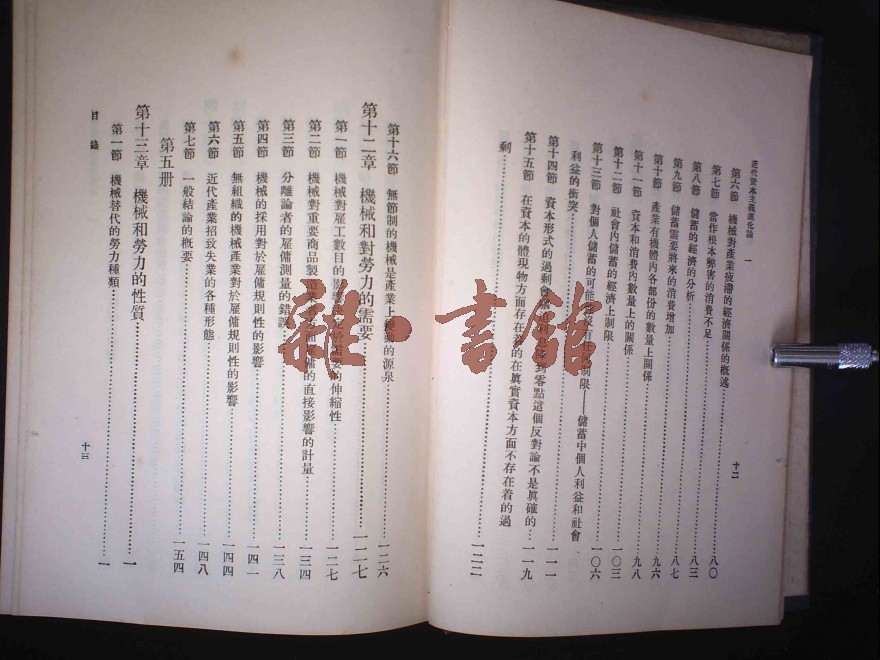 近代資本主義進化論 一 十二
第六節 機械對產業疲滯的經濟關係的概述 八〇
第七節 當作根本弊害的消費不足 八三
第八節 儲蓄的經濟的分析 八七
第九節 儲蓄需要將來的消費增加
第十節 產業有機體內各部份的數量上關係 九六
第十一節 資本和消費內數量上的關係 九八
第十二節 社會內儲蓄的經濟上制限 一〇三
第十三節 對個人儲蓄的可能 制限——儲蓄中個人利益和社會
利益的衝突 一〇六
第十四節 資本形式的過剩會 到零點這個反對論不是眞確的 一一一
第十五節 在資本的體現物方面存在着的在眞實資本方面不存在着的過 一一九
剩 一二二
第十六節 無節制的機械是產業上 的源泉 一二六
第十二章 機械和對勞力的需要 一二七
第一節 機械對雇工數目的影響 需要的伸縮性 一二七
第二節 機械對重要商品製造 方面 傭的直接影響的計量 一三四
第三節 分離論者的雇傭測量的錯誤 一三八
第四節 機械的採用對於雇傭規則性的影響 一四一
第五節 無組織的機械產業對於雇傭規則性的影響 一四四
第六節 近代產業招致失業的各種形態 一四八
第七節 一般結論的概要 一五四
第五册
第十三章 機械和勞力的性質 一
第一節 機械替代的勞力種類 一
目錄 十三
雜·書館